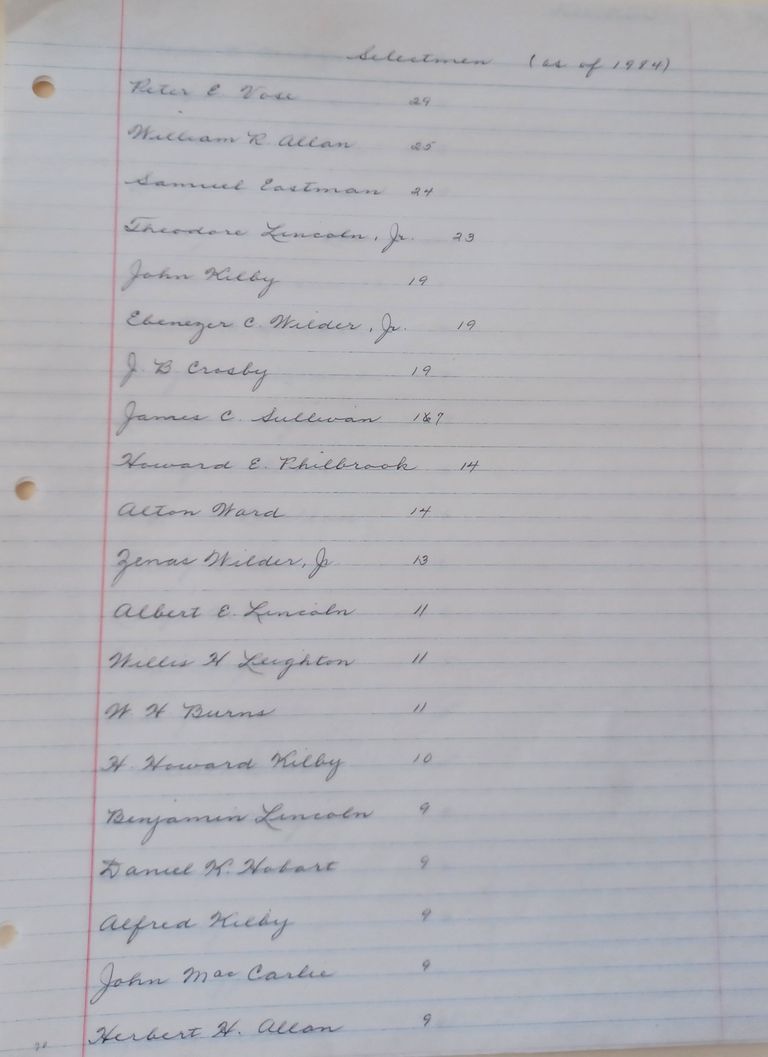 Selectmen (as of 1984)
Peter E. Vose 29
William R. Allan 25
Samuel Eastman 24
Theodore Lincoln, Jr. 23
John Kilby 19
Ebenezer C. Wilder, Jr. 19
J. B Crosby 19
James C. Sullivan 17
Howard E. Philbrook 14
Alton Ward 14
Zenas Wilder, Jr 13
Albert E. Lincoln 11
Willis H Leighton 11
W. H Burns 11
H. Howard Kilby 10
Benjamin Lincoln 9
Daniel K. Hobart 9
Alfred Kilby 9
John Mac 9
Herbert H. Allan 9